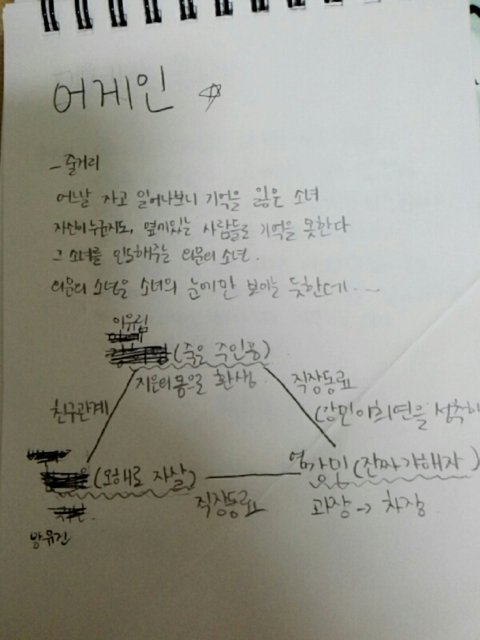 어게인
- 줄거리
어느날 자고 일어나보니 기억을 잃은 소녀
자신이 누군지도, 옆에있는 사람들도 기억을 못한다
그 소녀를 인도해주는 의문의 소년.
의문의 소년은 소녀의 눈에만 보이는 듯한데...
이유림
(죽은 주인공)
지은이 몸으로 환생
친구관계
직장동료
(오해로 자살)
직장동료
(진짜가해자)
과장 → 차장
방유진